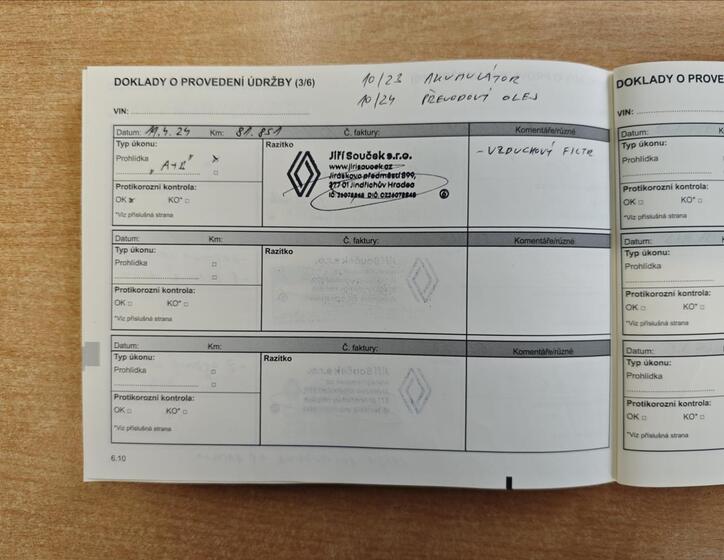 DOKLADY O PROVEDENÍ ÚDRŽBY (3/6)
10/23 AKUMULÁTOR
10/24 PŘEVODOVÝ OLEJ
VIN:
Datum: 11.4.24 Km: 81.851 Č. faktury: Komentáře/různé
Typ úkonu:
Prohlídka
"A+B"
Protikorozní kontrola:
OK KO*
*Viz příslušná strana
Razítko
Jiří Souček s.r.o.
www.jirisoucek.cz
Jiráskovo předměstí 899,
377 01 Jindřichův Hradec
- VZDUCHOVÝ FILTR
Datum: Km: Č. faktury: Komentáře/různé
Typ úkonu:
Prohlídka
Protikorozní kontrola:
OK KO*
*Viz příslušná strana
Razítko
Datum: Km: Č. faktury: Komentáře/různé
Typ úkonu:
Prohlídka
Protikorozní kontrola:
OK KO*
*Viz příslušná strana
Razítko
6.10
DOKLADY O PROVE
VIN:
Datum:
Typ úkonu:
Prohlídka
Protikorozní kontrola:
OK KO*
*Viz příslušná strana
Datum:
Typ úkonu:
Prohlídka
Protikorozní kontrola:
OK KO*
*Viz příslušná strana
Datum:
Typ úkonu:
Prohlídka
Protikorozní kontrola:
OK KO*
*Viz příslušná strana